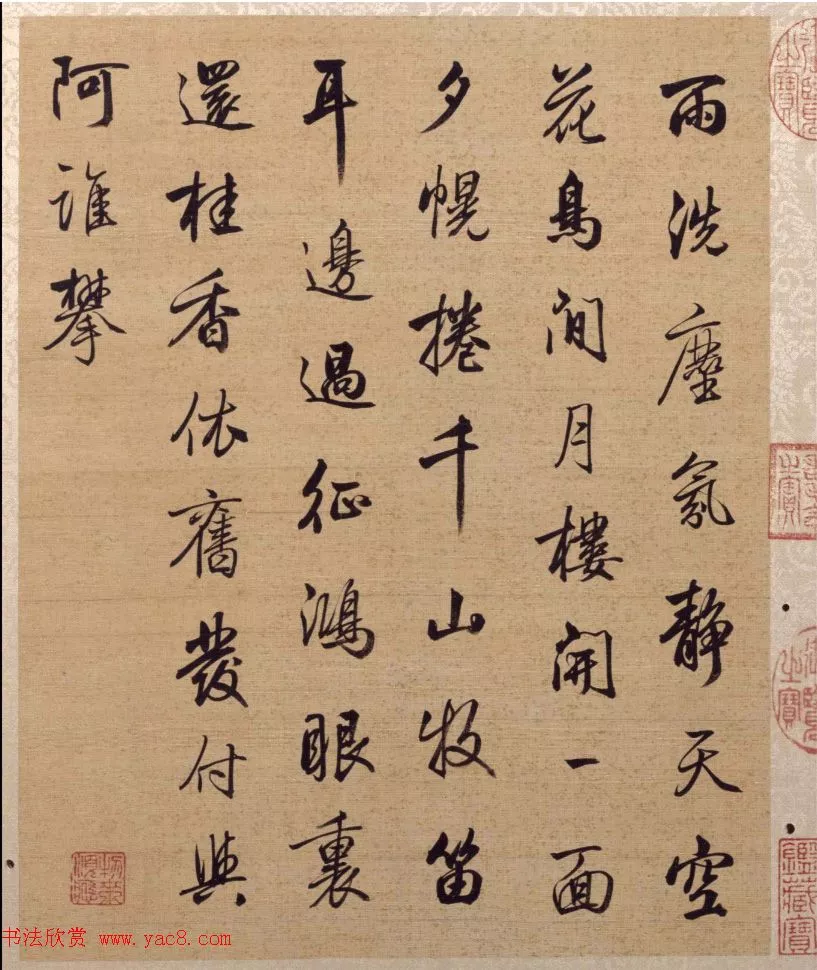 雨洗塵氛静天空
花鳥间月樓開一面
夕幌捲千山牧笛
耳邊過征鴻眼裏
還桂香依舊發付與
阿誰攀
鑑藏寶
书法欣赏 www.yac8.com